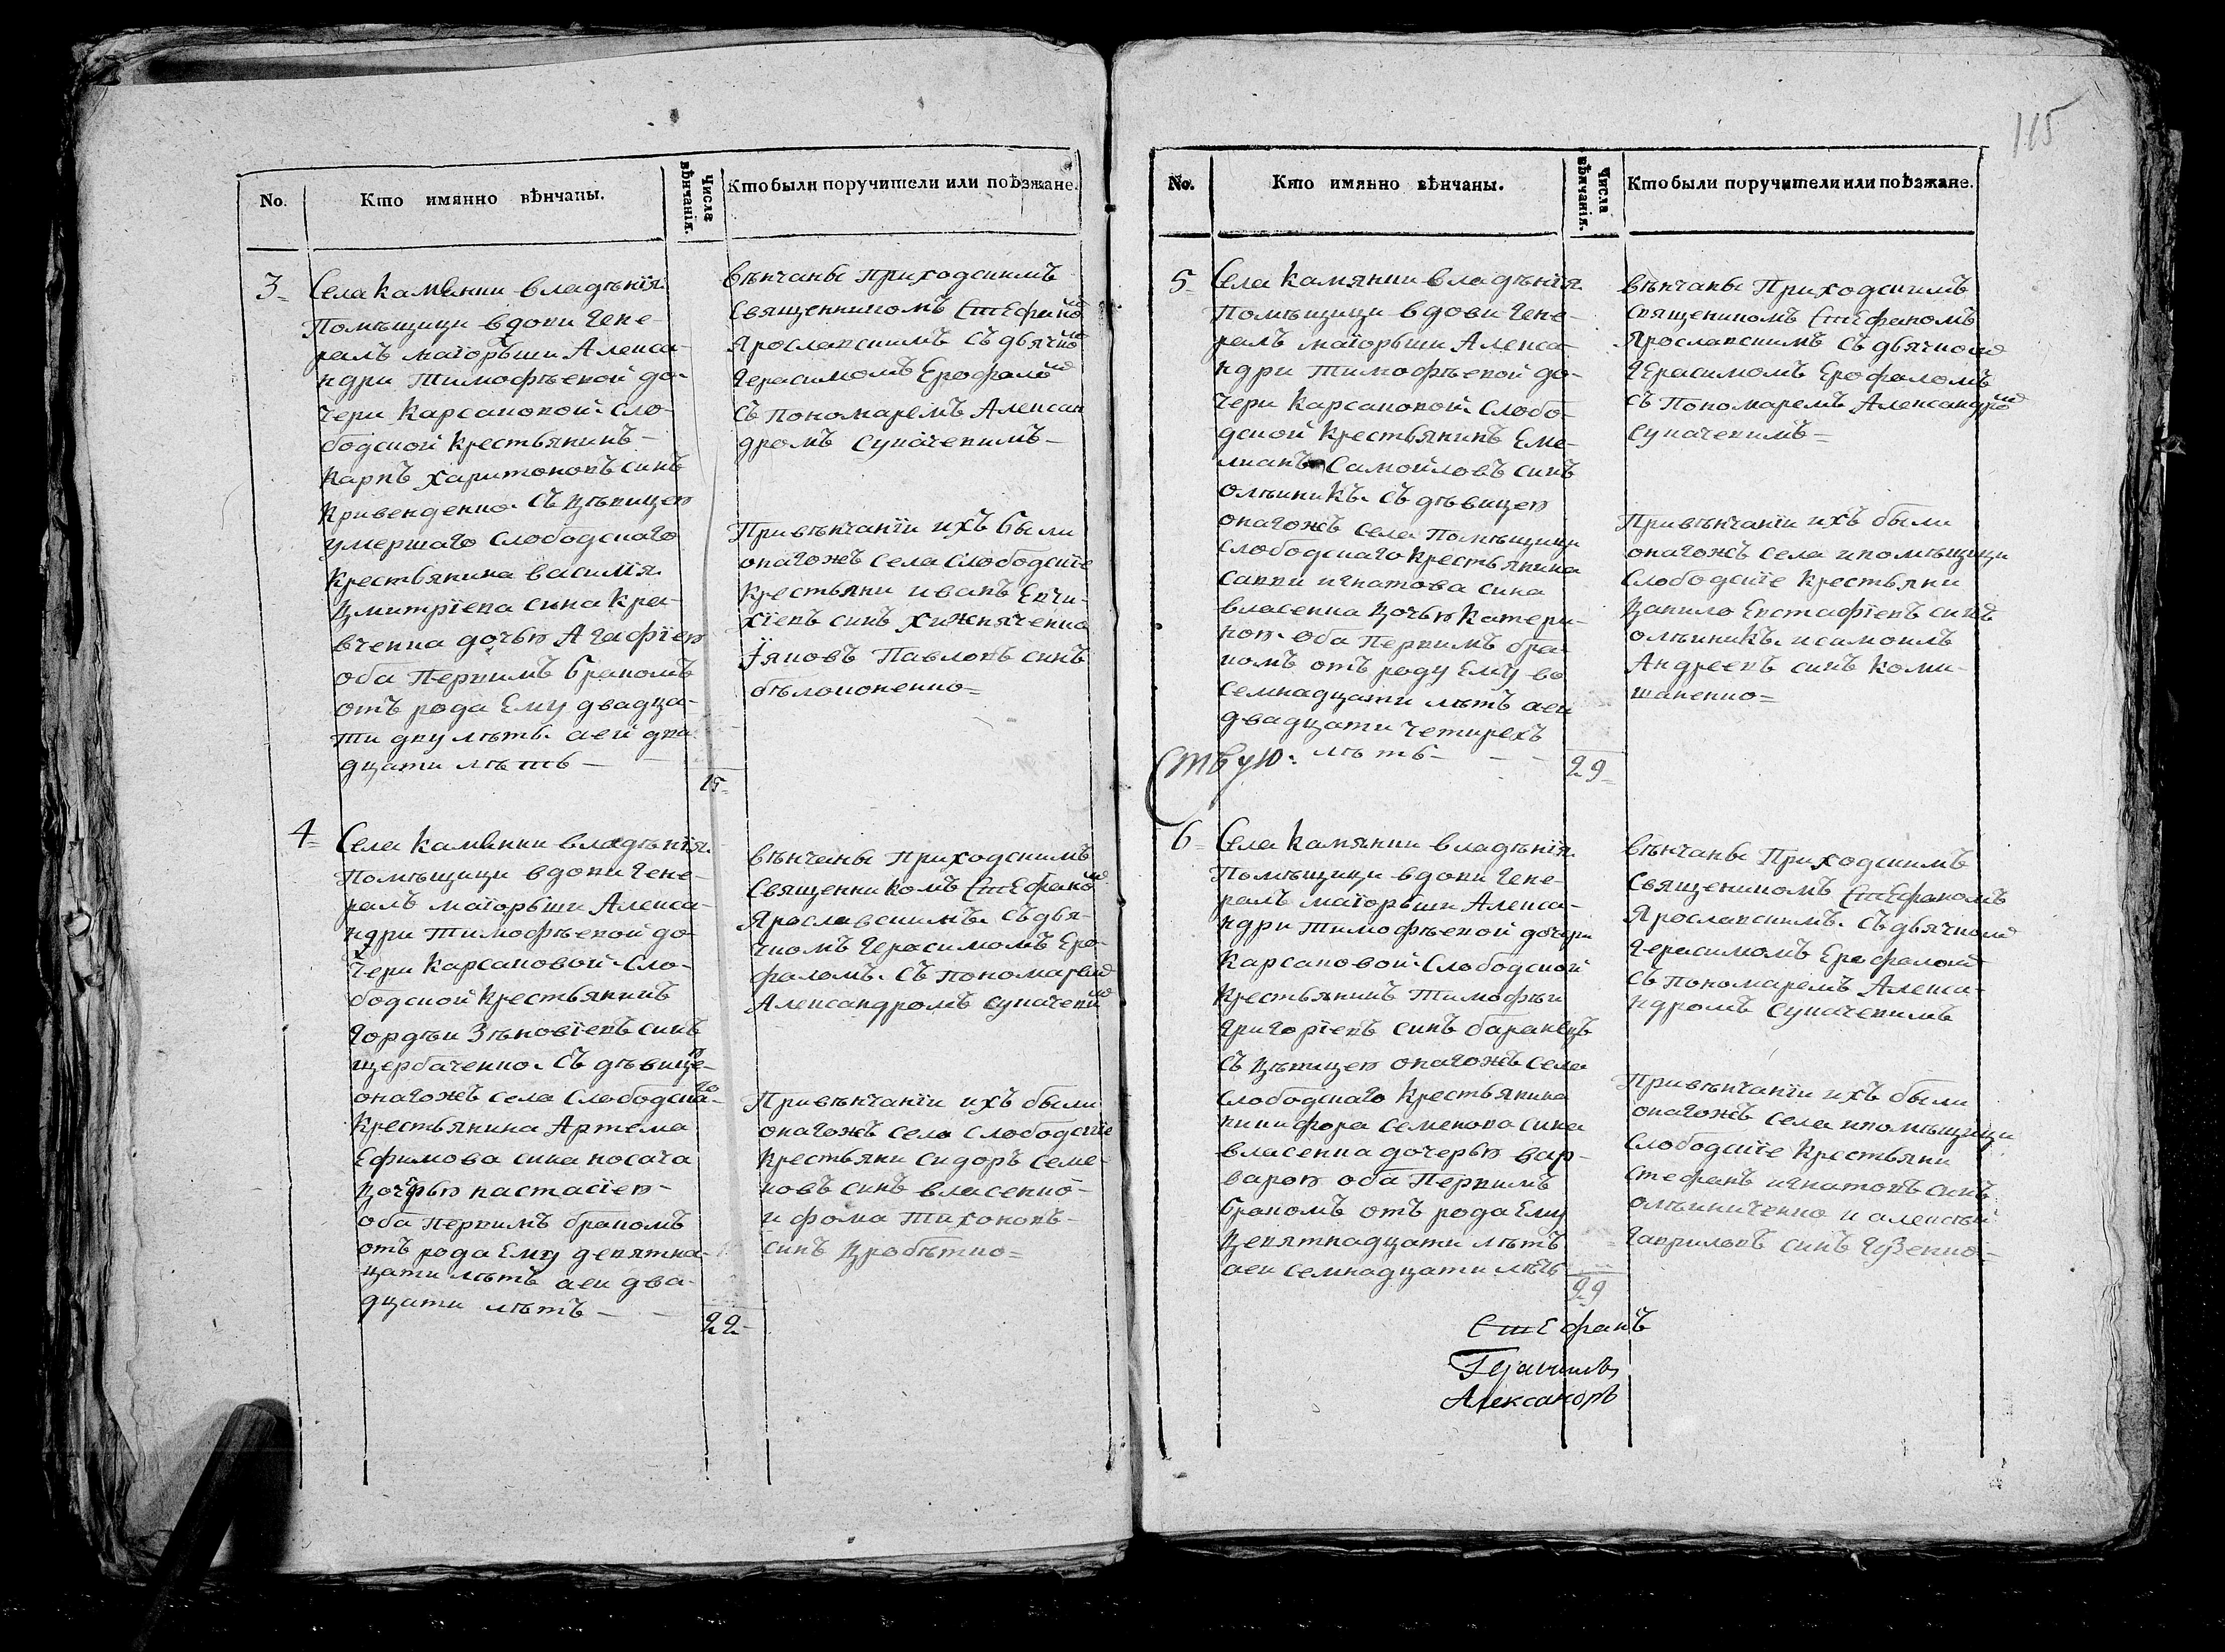 115
No.
Кто имянно вѣнчаны.
Числа вѣнчанія.
Кто были поручители или поѣзжане.
3
Села Камянки владѣнія
Помѣщици вдови Гене-
ралъ маіорьши Алекса-
ндри Тимофѣевой до-
чери Карсаковой Сло-
бодской Крестьянинъ
Карпъ Харитоновъ синъ
Кривенденко. Съ дѣвицею
умершаго Слободскаго
Крестьянина Василія
Дмитріева сина Кра-
вченка дочью Агафіею
оба Первимъ бракомъ
отъ рода Ему двадца-
ти дву лѣтъ. а ей два
дцати лѣтъ
15
вѣнчаны Приходскимъ
Священникомъ Стефаномъ
Ярославскимъ Съ дьячкомъ
Герасимомъ Ерофаломъ
Съ Пономаремъ Алексан
дромъ Сукачевимъ
При вѣнчаніи ихъ были
онагожъ Села Слободскіе
Крестьяни Иванъ Евчи-
хіевъ синъ Хижняченко
Іяковъ Павловъ синъ
бѣлоконенко
4
Села Камянки владѣнія
Помѣщици вдови Гене-
ралъ маіорьши Алекса-
ндри Тимофѣевой до-
чери Карсаковой Сло-
бодской Крестьянинъ
Гордѣи Зѣновіевъ синъ
щербаченко. Съ дѣвицею
онагожъ села Слободскаго
Крестьянина Артема
Ефимова сина носача
Дочерью настасіею
Оба первимъ бракомъ
отъ рода Ему девятна-
цати лѣтъ а еи два-
дцати лѣтъ
22
вѣнчаны Приходскимъ
Священникомъ Стефаномъ
Ярославскимъ. Съ дья-
чкомъ Герасимомъ Еро-
фаломъ. Съ пономаремъ
Александромъ Сукачевимъ
При вѣнчаніи ихъ были
онагожъ села Слободскіе
Крестьяни Сидоръ Семе-
новъ синъ власенко
и фома Тихоновъ
синъ Дробѣтко
No.
Кто имянно вѣнчаны.
Числа вѣнчанія.
Кто были поручители или поѣзжане.
5
Села Камянки владѣнія
Помѣщици вдови Гене-
ралъ маіорьши Алекса-
ндри Тимофѣевой до-
чери Карсаковой Слобо-
дской Крестьянинъ Еме-
лианъ Самойловъ синъ
олѣиникъ. Съ дѣвицею
онагожъ села Помѣщици
слободскаго Крестьянина
Савки игнатова сина
власенка Дочью Катери-
ною. оба Первимъ бра-
комъ отъ роду Ему во
семнадцати лѣтъ а еи
двадцати четирехъ
лѣтъ
Ствую.
29
вѣнчаны Приходскимъ
Священикомъ Стефаномъ
Ярославскимъ Съ дьячкомъ
Герасимомъ Ерофаломъ
Съ Пономаремъ Александромъ
Сукачевимъ
При вѣнчаніи ихъ были
онагожъ села и помѣщици
Слободскіе Крестьяни
Данило Евстафіевъ синъ
олѣиникъ. и самоилъ
Андреевъ синъ Коми-
шаненко
6
Села Камянки владѣнія
Помѣщици вдови Гене-
ралъ маіорьши Алекса-
ндри Тимофѣевой дочери
Карсаковой Слободской
Крестьянинъ Тимофѣи
Григоріевъ синъ баранецъ
Съ дѣвицею онагожъ села
Слободскаго Крестьянина
никифора Семенова сина
власенка дочерью вар-
варою оба Первимъ
бракомъ отъ рода Ему
Девятнадцати лѣтъ
а еи семнадцати лѣтъ
29
вѣнчаны Приходскимъ
Священикомъ Стефаномъ
Ярославскимъ. Съ дьячкомъ
Герасимомъ Ерофаломъ
Съ Пономаремъ Алекса-
ндромъ Сукачевимъ
При вѣнчаніи ихъ были
онагожъ села и помѣщици
Слободскіе Крестьяни
Стефанъ игнатовъ синъ
олѣиниченко и алексѣй
Гавриловъ синъ Гузенко
Стефанъ
Герасимъ
Александръ